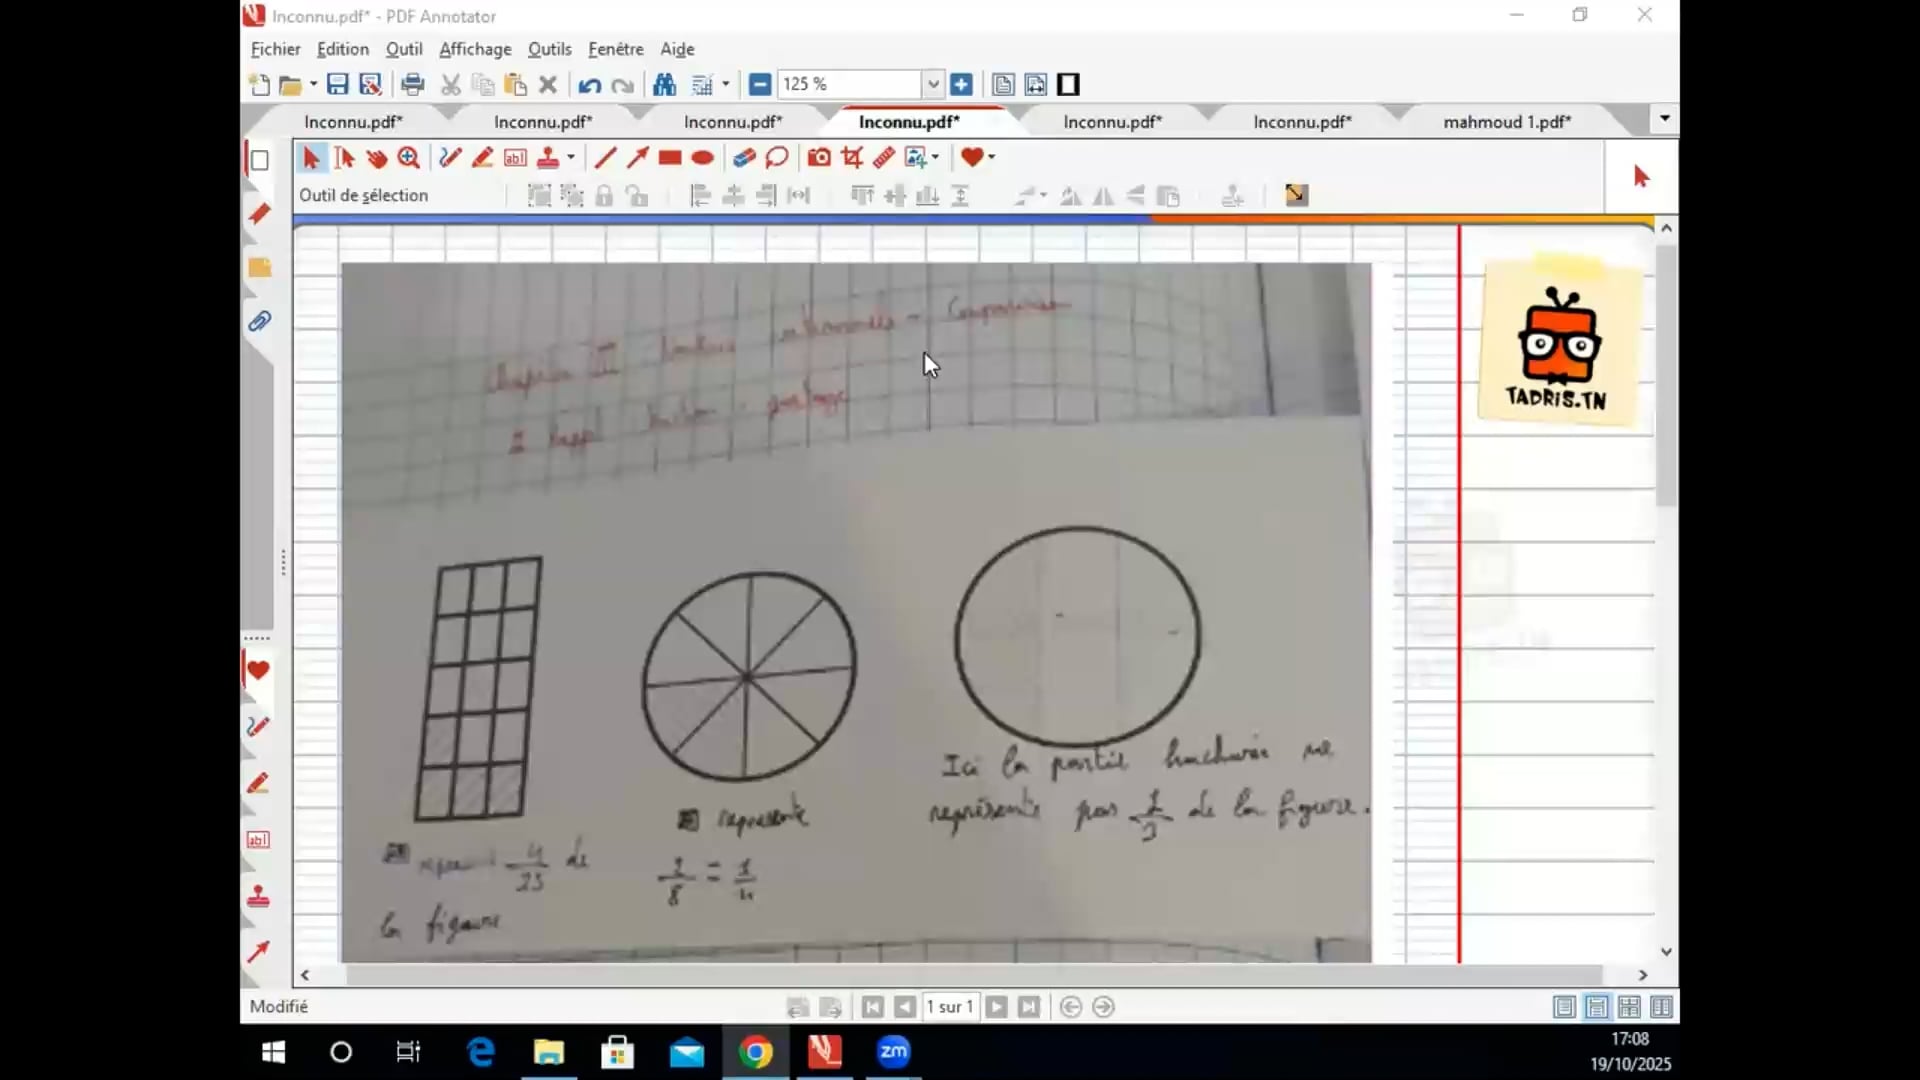 Inconnu.pdf* - PDF Annotator
Fichier Edition Outil Affichage Outils Fenêtre Aide
125 %
Inconnu.pdf* Inconnu.pdf* Inconnu.pdf* Inconnu.pdf* Inconnu.pdf* Inconnu.pdf* mahmoud 1.pdf*
Outil de sélection
TADRIS.TN
Chapitre III
partage
Ici la partie hachurée ne
représente pas 1/3 de la figure.
représente
de
la figure
Modifié
1 sur 1
17:08
19/10/2025
zm